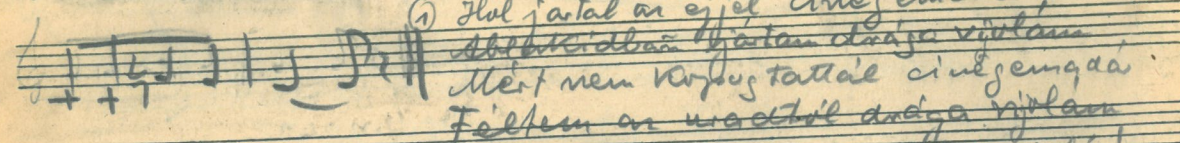 ① Hol jártál az éjjel cinege
Ablakidban jártam drága violám
Mért nem kopogtattál cinegemadá
Féltem az uradtól drága violám